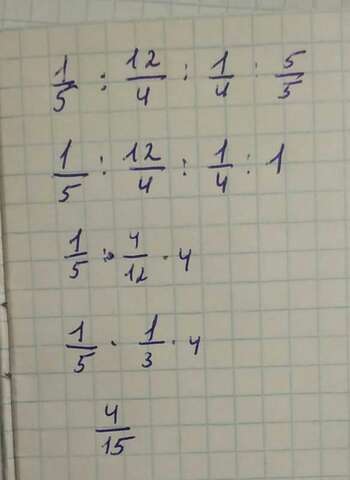 1/5 : 12/4 : 1/4 : 5/5
1/5 : 12/4 : 1/4 : 1
1/5 · 4/12 · 4
1/5 · 1/3 · 4
4/15